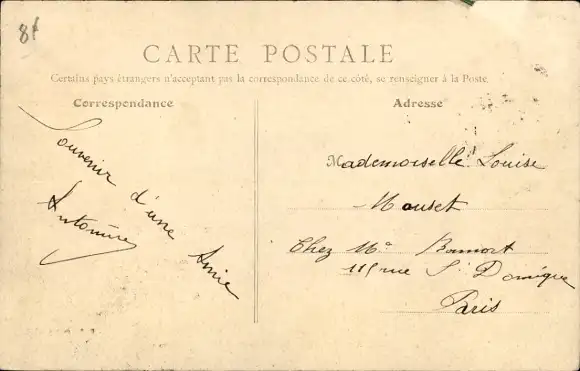 8f
CARTE POSTALE
Certains pays étrangers n'acceptant pas la correspondance de ce côté, se renseigner à la Poste.
Correspondance
Adresse
Souvenir d'une Amie
Antonine
Mademoiselle Louise
Mouset
Chez Me Bomort
115 rue St Domique
Paris